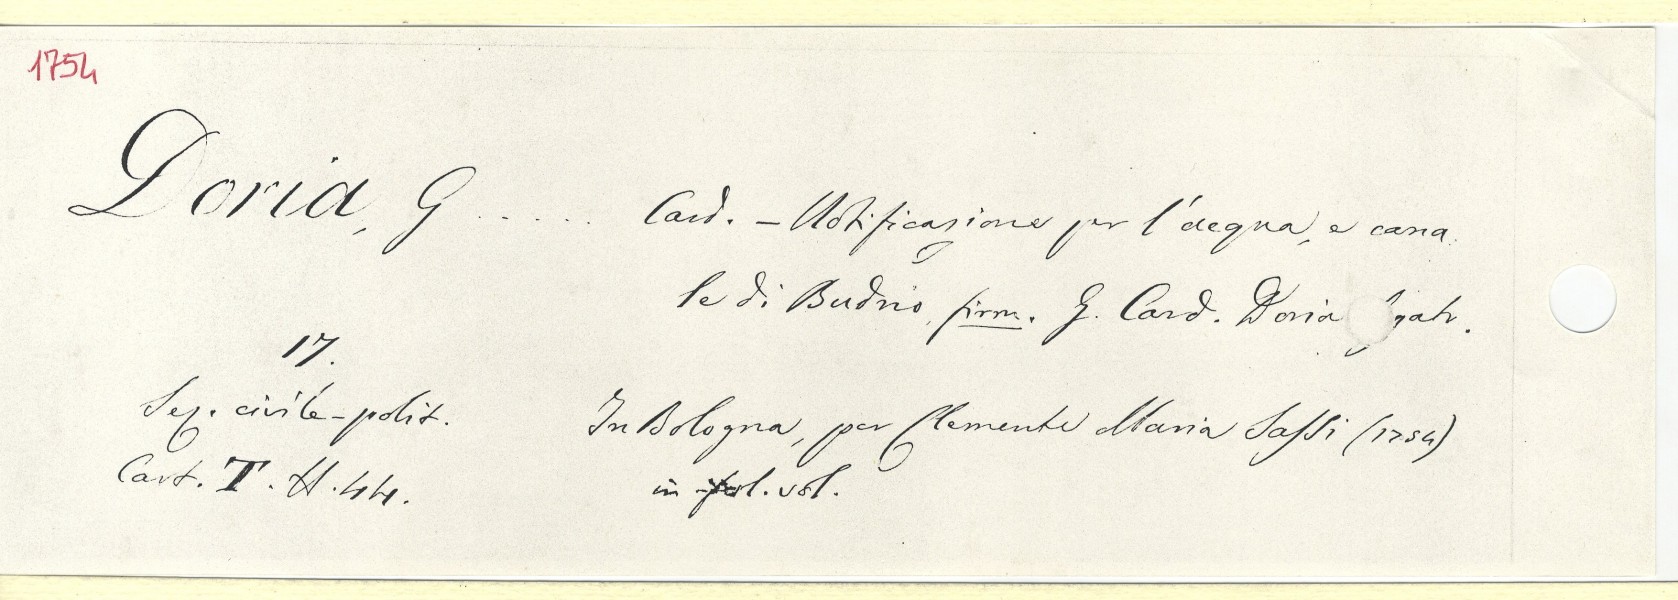 1754
Doria, G ..... Card. - Notificazione per l'acqua, e cana
le di Budrio, firm. G. Card. Doria
17.
Sez. civile-polit. In Bologna, per Clemente Maria Sassi (1754)
Cart. T. H. 44. in fol. vol.